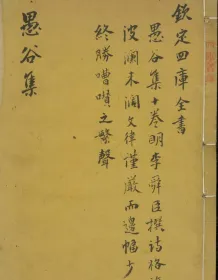 欽定四庫全書
愚谷集十卷明李舜臣撰詩格
波瀾未闊文律謹嚴而邊幅少
終勝嘈囋之繁聲
愚谷集